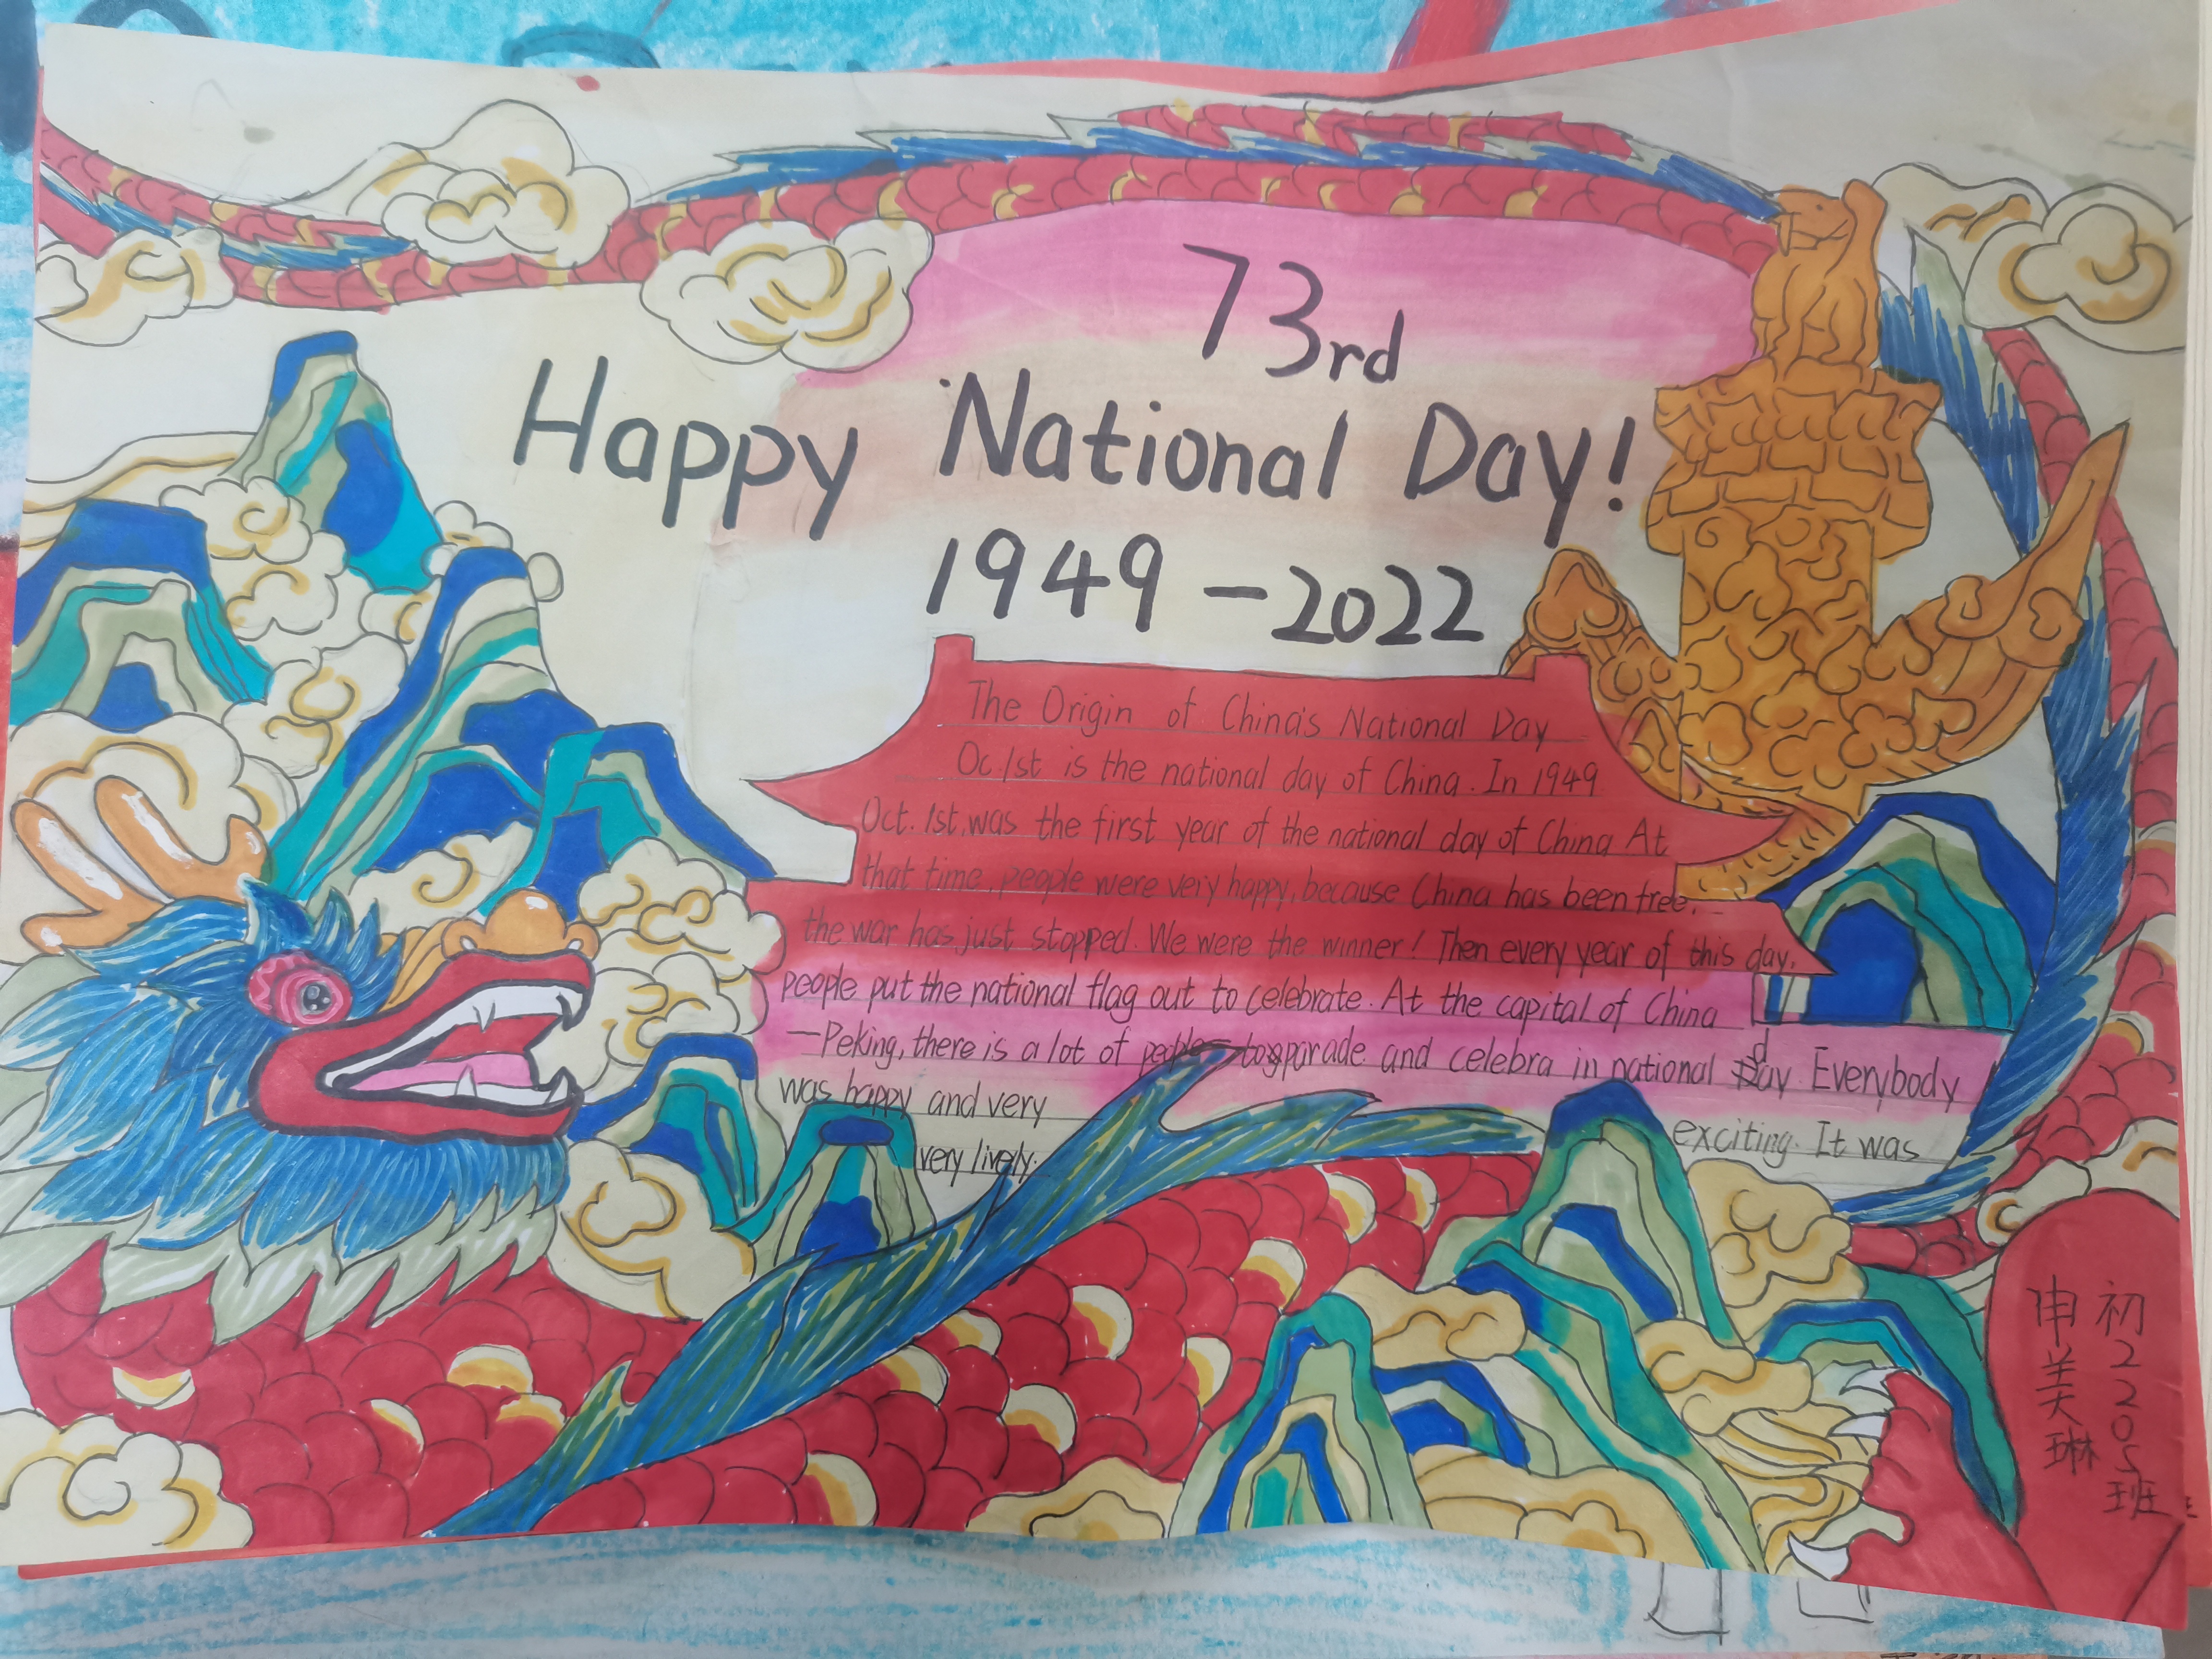 73rd
Happy National Day!
1949-2022
The Origin of China's National Day
Oc.1st is the national day of China. In 1949
Oct. 1st, was the first year of the national day of China At
that time, people were very happy, because China has been free.
the war has just stopped. We were the winner! Then every year of this day,
people put the national flag out to celebrate. At the capital of China
—Peking, there is a lot of people to parade and celebra in national day. Everybody
was happy and very exciting. It was
very lively.
初2205班
申美琳